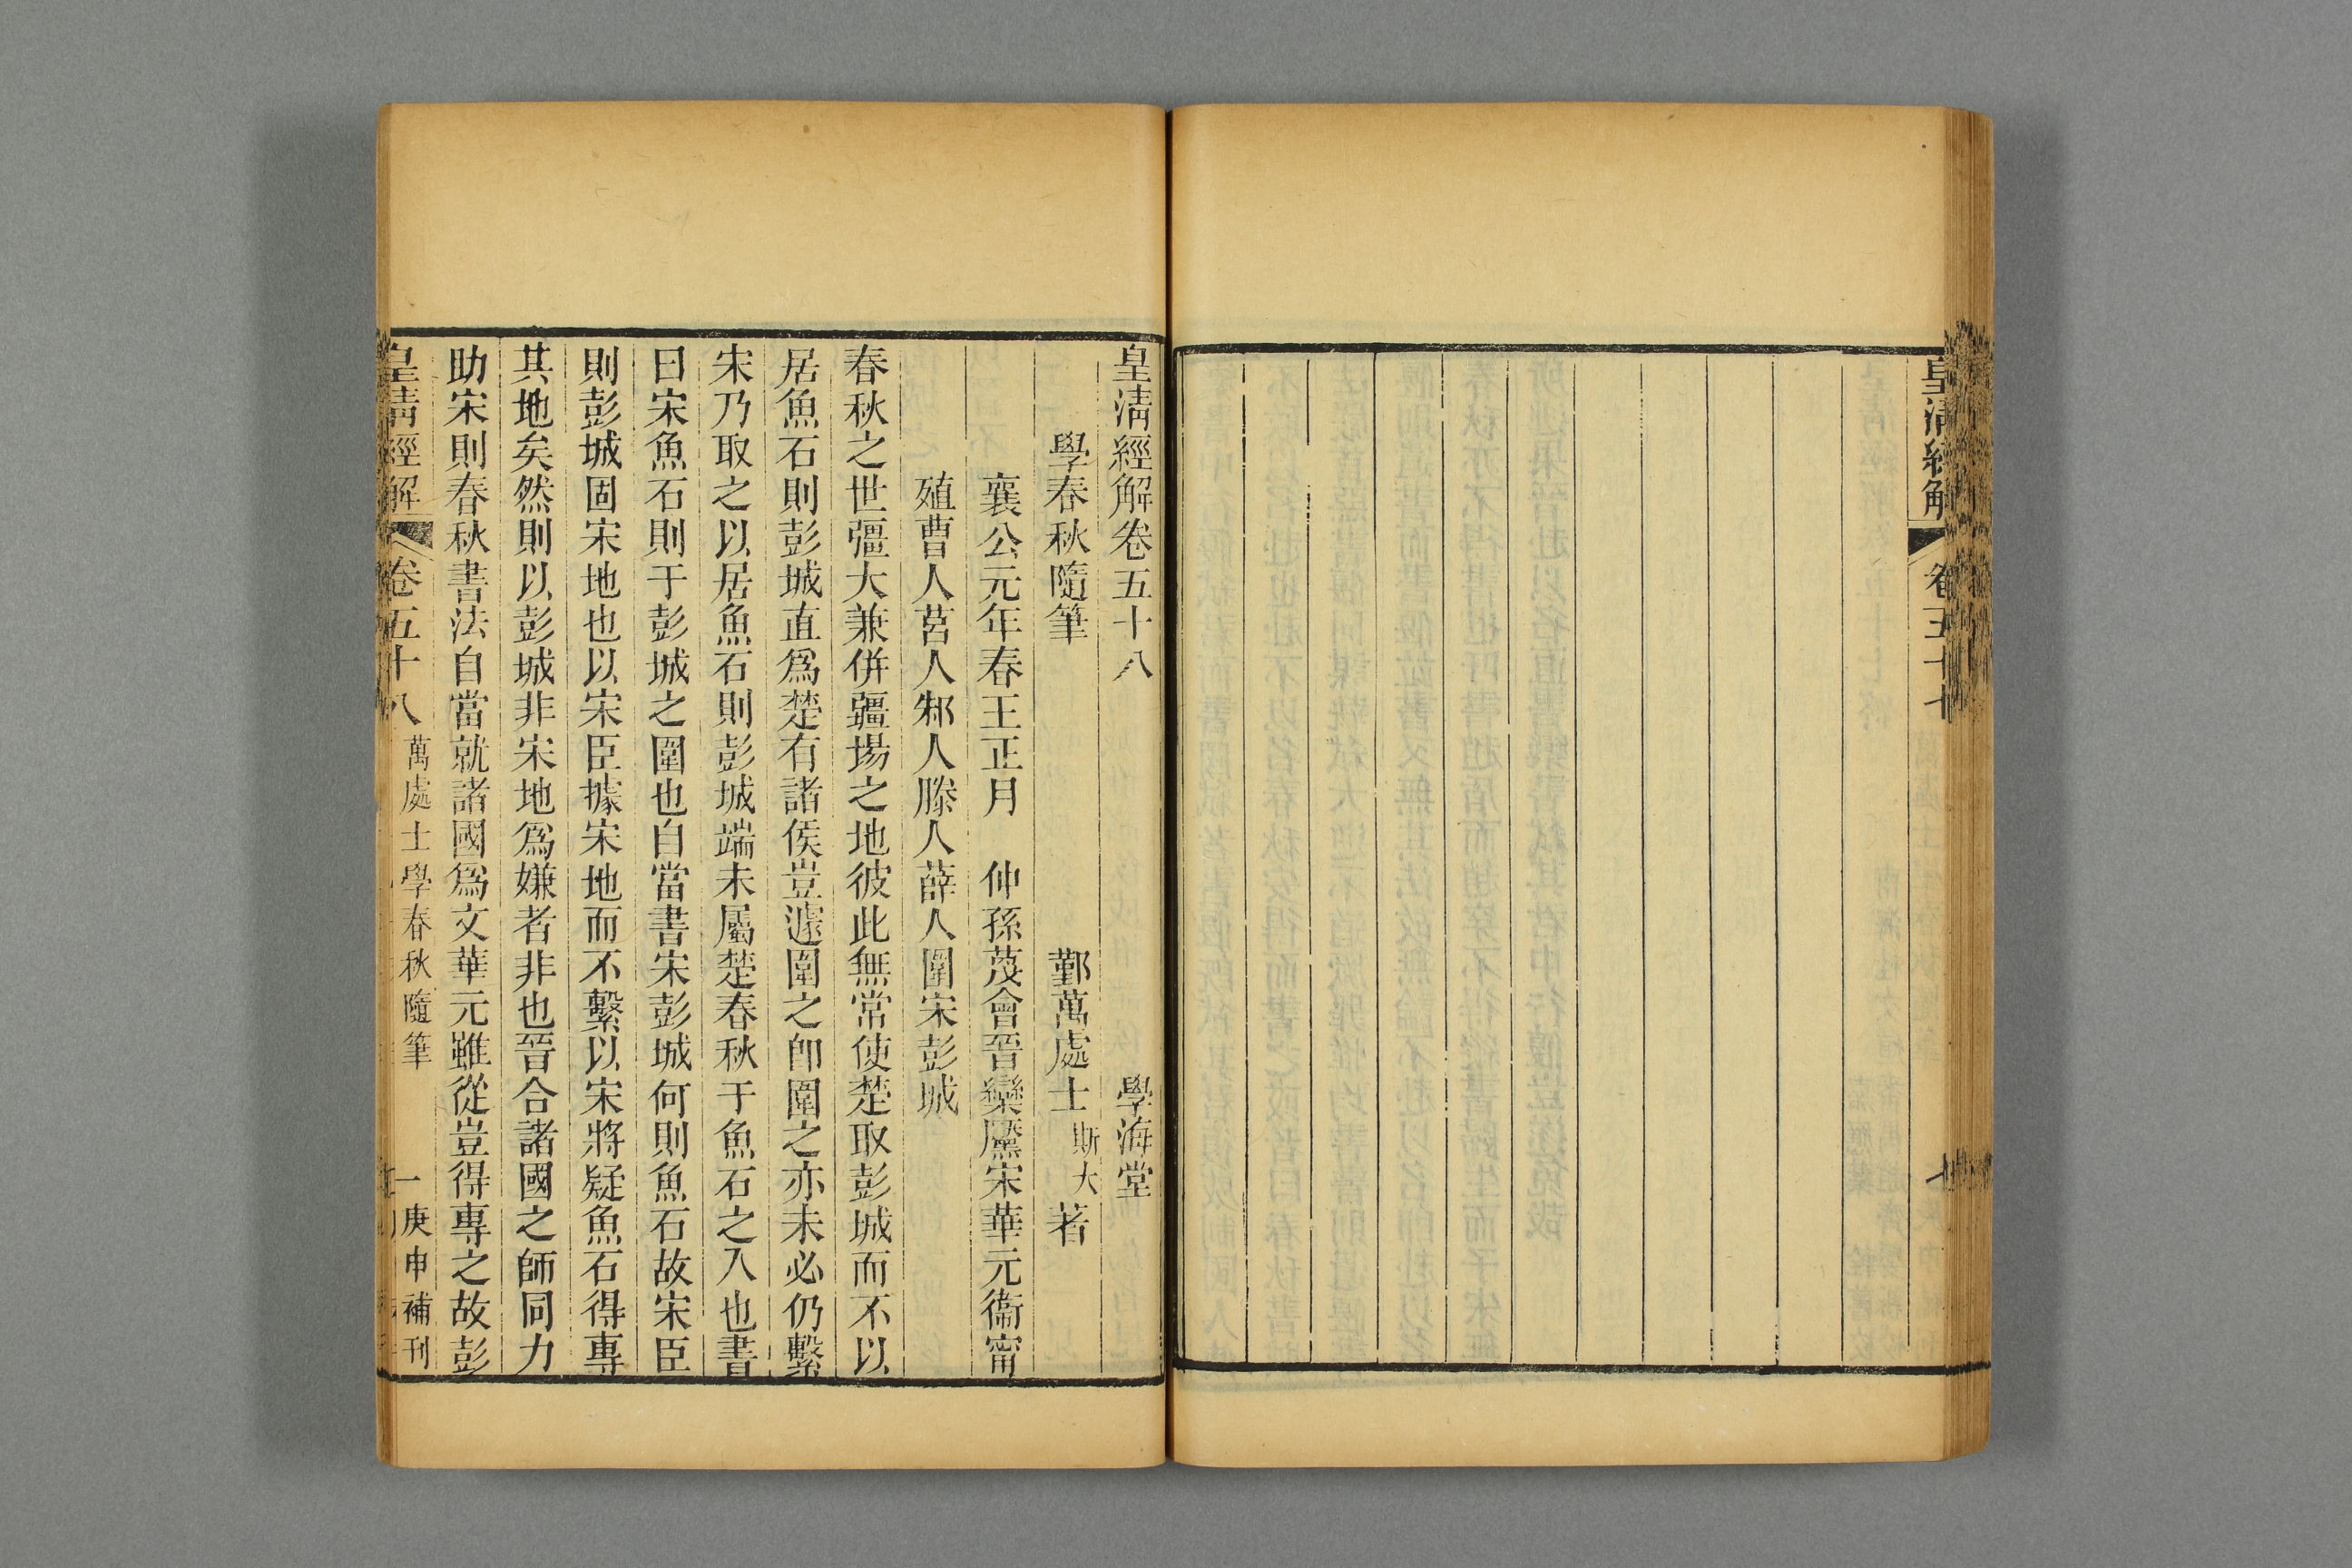 皇清經解 卷五十七 七
皇清經解卷五十八 學海堂
學春秋隨筆 鄞萬處士斯大著
襄公元年春王正月 仲孫蔑會晉欒黶宋華元衞甯
殖曹人莒人邾人滕人薛人圍宋彭城
春秋之世彊大兼併疆埸之地彼此無常使楚取彭城而不以
居魚石則彭城直爲楚有諸侯豈遽圍之卽圍之亦未必仍繫
宋乃取之以居魚石則彭城端未屬楚春秋于魚石之入也書
曰宋魚石則于彭城之圍也自當書宋彭城何則魚石故宋臣
則彭城固宋地也以宋臣據宋地而不繫以宋將疑魚石得專
其地矣然則以彭城非宋地爲嫌者非也晉合諸國之師同力
助宋則春秋書法自當就諸國爲文華元雖從豈得專之故彭
皇清經解 卷五十八 萬處士學春秋隨筆 一 庚申補刊